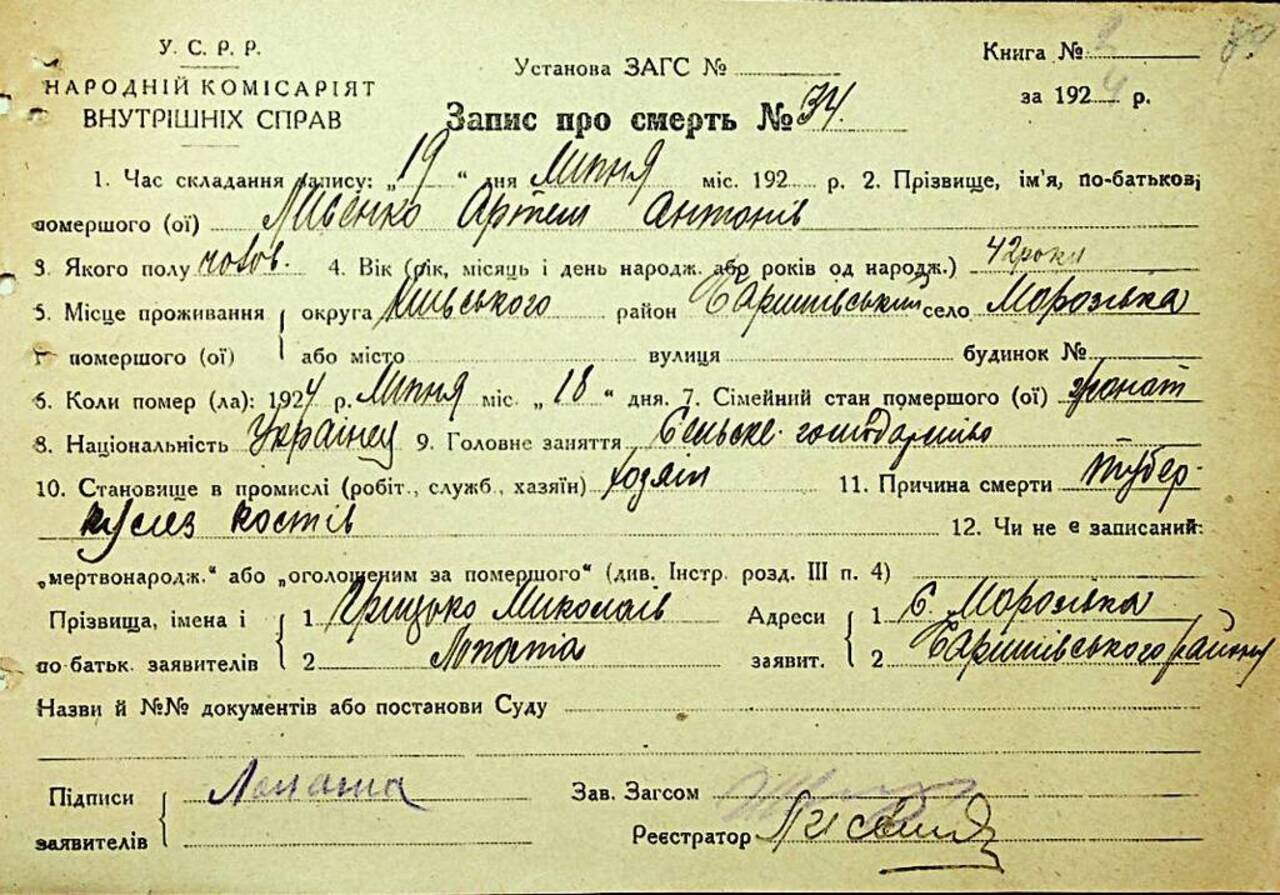 У. С. Р. Р.
НАРОДНІЙ КОМІСАРІЯТ
ВНУТРІШНІХ СПРАВ
Установа ЗАГС №
Книга №
за 1924 р.
Запис про смерть № 34.
1. Час складання запису: „19“ дня Липня міс. 192 р. 2. Прізвище, ім'я, по-батькові
помершого (ої) Лисенко Артем Антонів
3. Якого полу чолов. 4. Вік (рік, місяць і день народж. або років од народж.) 42 роки
5. Місце проживання округа Київського район Баришівський село Морозівка
помершого (ої) або місто вулиця будинок №
6. Коли помер (ла): 1924 р. Липня міс. „18“ дня. 7. Сімейний стан помершого (ої) жонат
8. Національність Українец 9. Головне заняття Сельске господарство
10. Становище в промислі (робіт., служб., хазяїн) 11. Причина смерти тубер-
кулез костів 12. Чи не є записаний:
„мертвонародж.“ або „оголошеним за помершого“ (див. Інстр. розд. III п. 4)
Прізвища, імена і 1 Грицько Миколаїв Адреси 1 С. Морозівка
по батьк. заявителів 2 Лопата заявит. 2 Баришівського району
Назви й №№ документів або постанови Суду
Підписи Лопата Зав. Загсом
заявителів Реєстратор